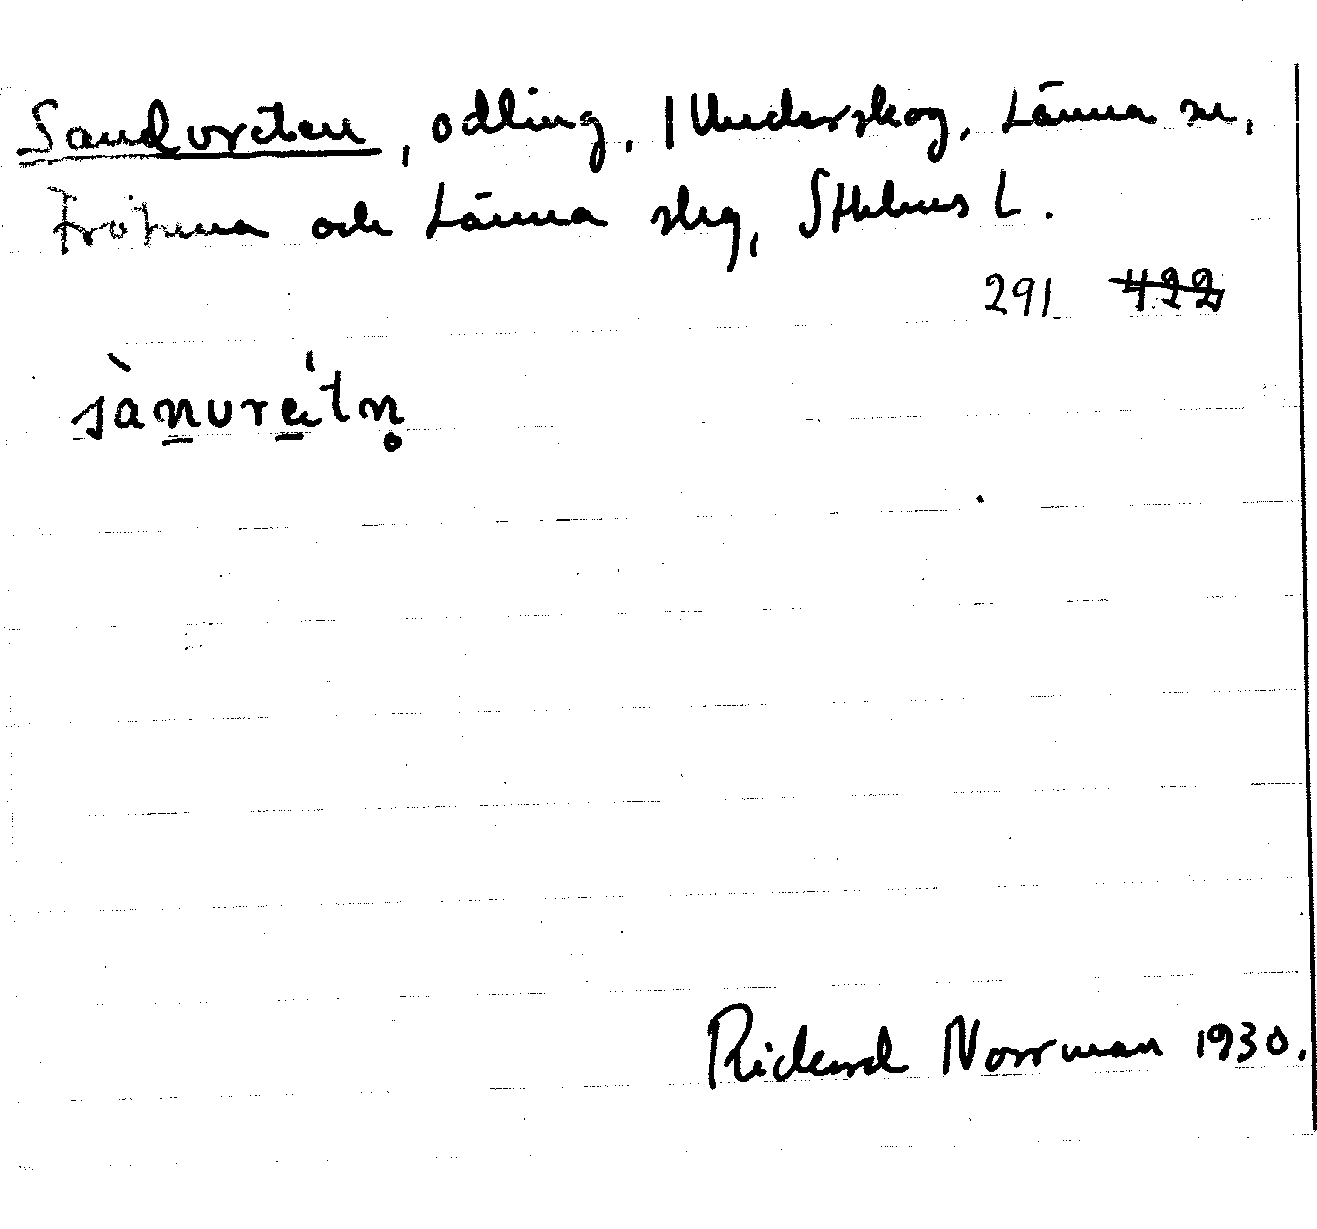 Sandvreten, odling, Underskog, Länna sn,
Frötuna och Länna skg, Sthlms L.
291 422
sànvrétn̥
Rickard Norrman 1930.